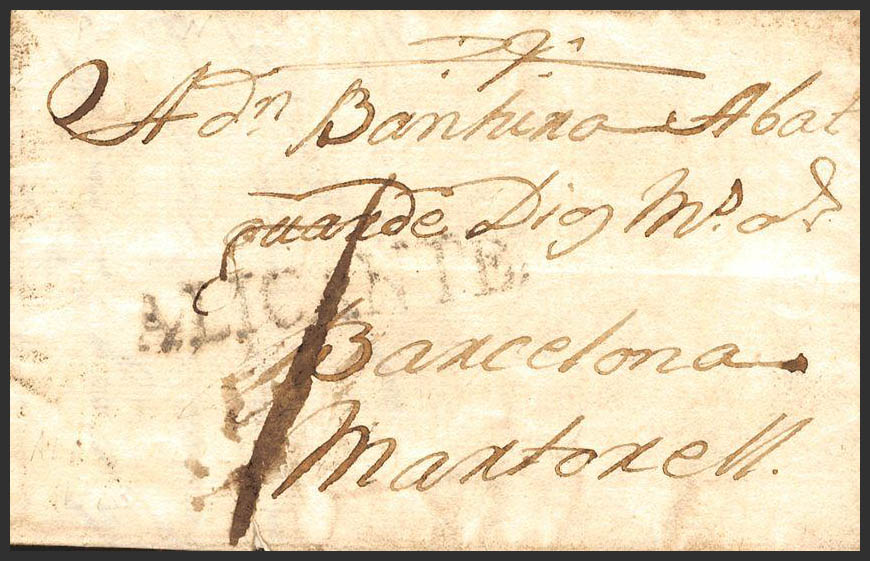 A dn Bantura Abat
guarde Dios Ms. As.
ALICANTE
Barcelona
Martorell.